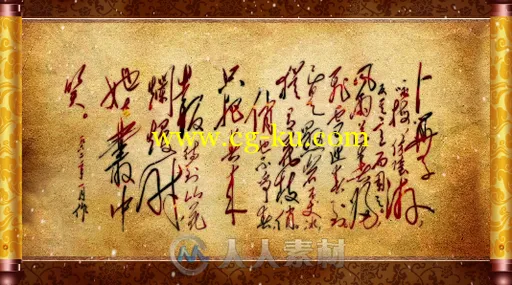 卜算子
风雨送春归
飞雪迎春到
已是悬崖百丈冰
犹有花枝俏
俏也不争春
只把春来
报待到山花
烂漫时
她在叢中
笑。
www.cg-ku.com
人人素材